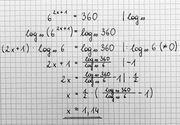 6^(2x+1) = 360 | log₁₀
log₁₀(6^(2x+1)) = log₁₀ 360
(2x+1) · log₁₀ 6 = log₁₀ 360 | · log₁₀ 6 (≠0)
2x+1 = log₁₀ 360 / log₁₀ 6 | -1
2x = log₁₀ 360 / log₁₀ 6 - 1 | · 1/2
x = 1/2 (log₁₀ 360 / log₁₀ 6 - 1)
x = 1,14